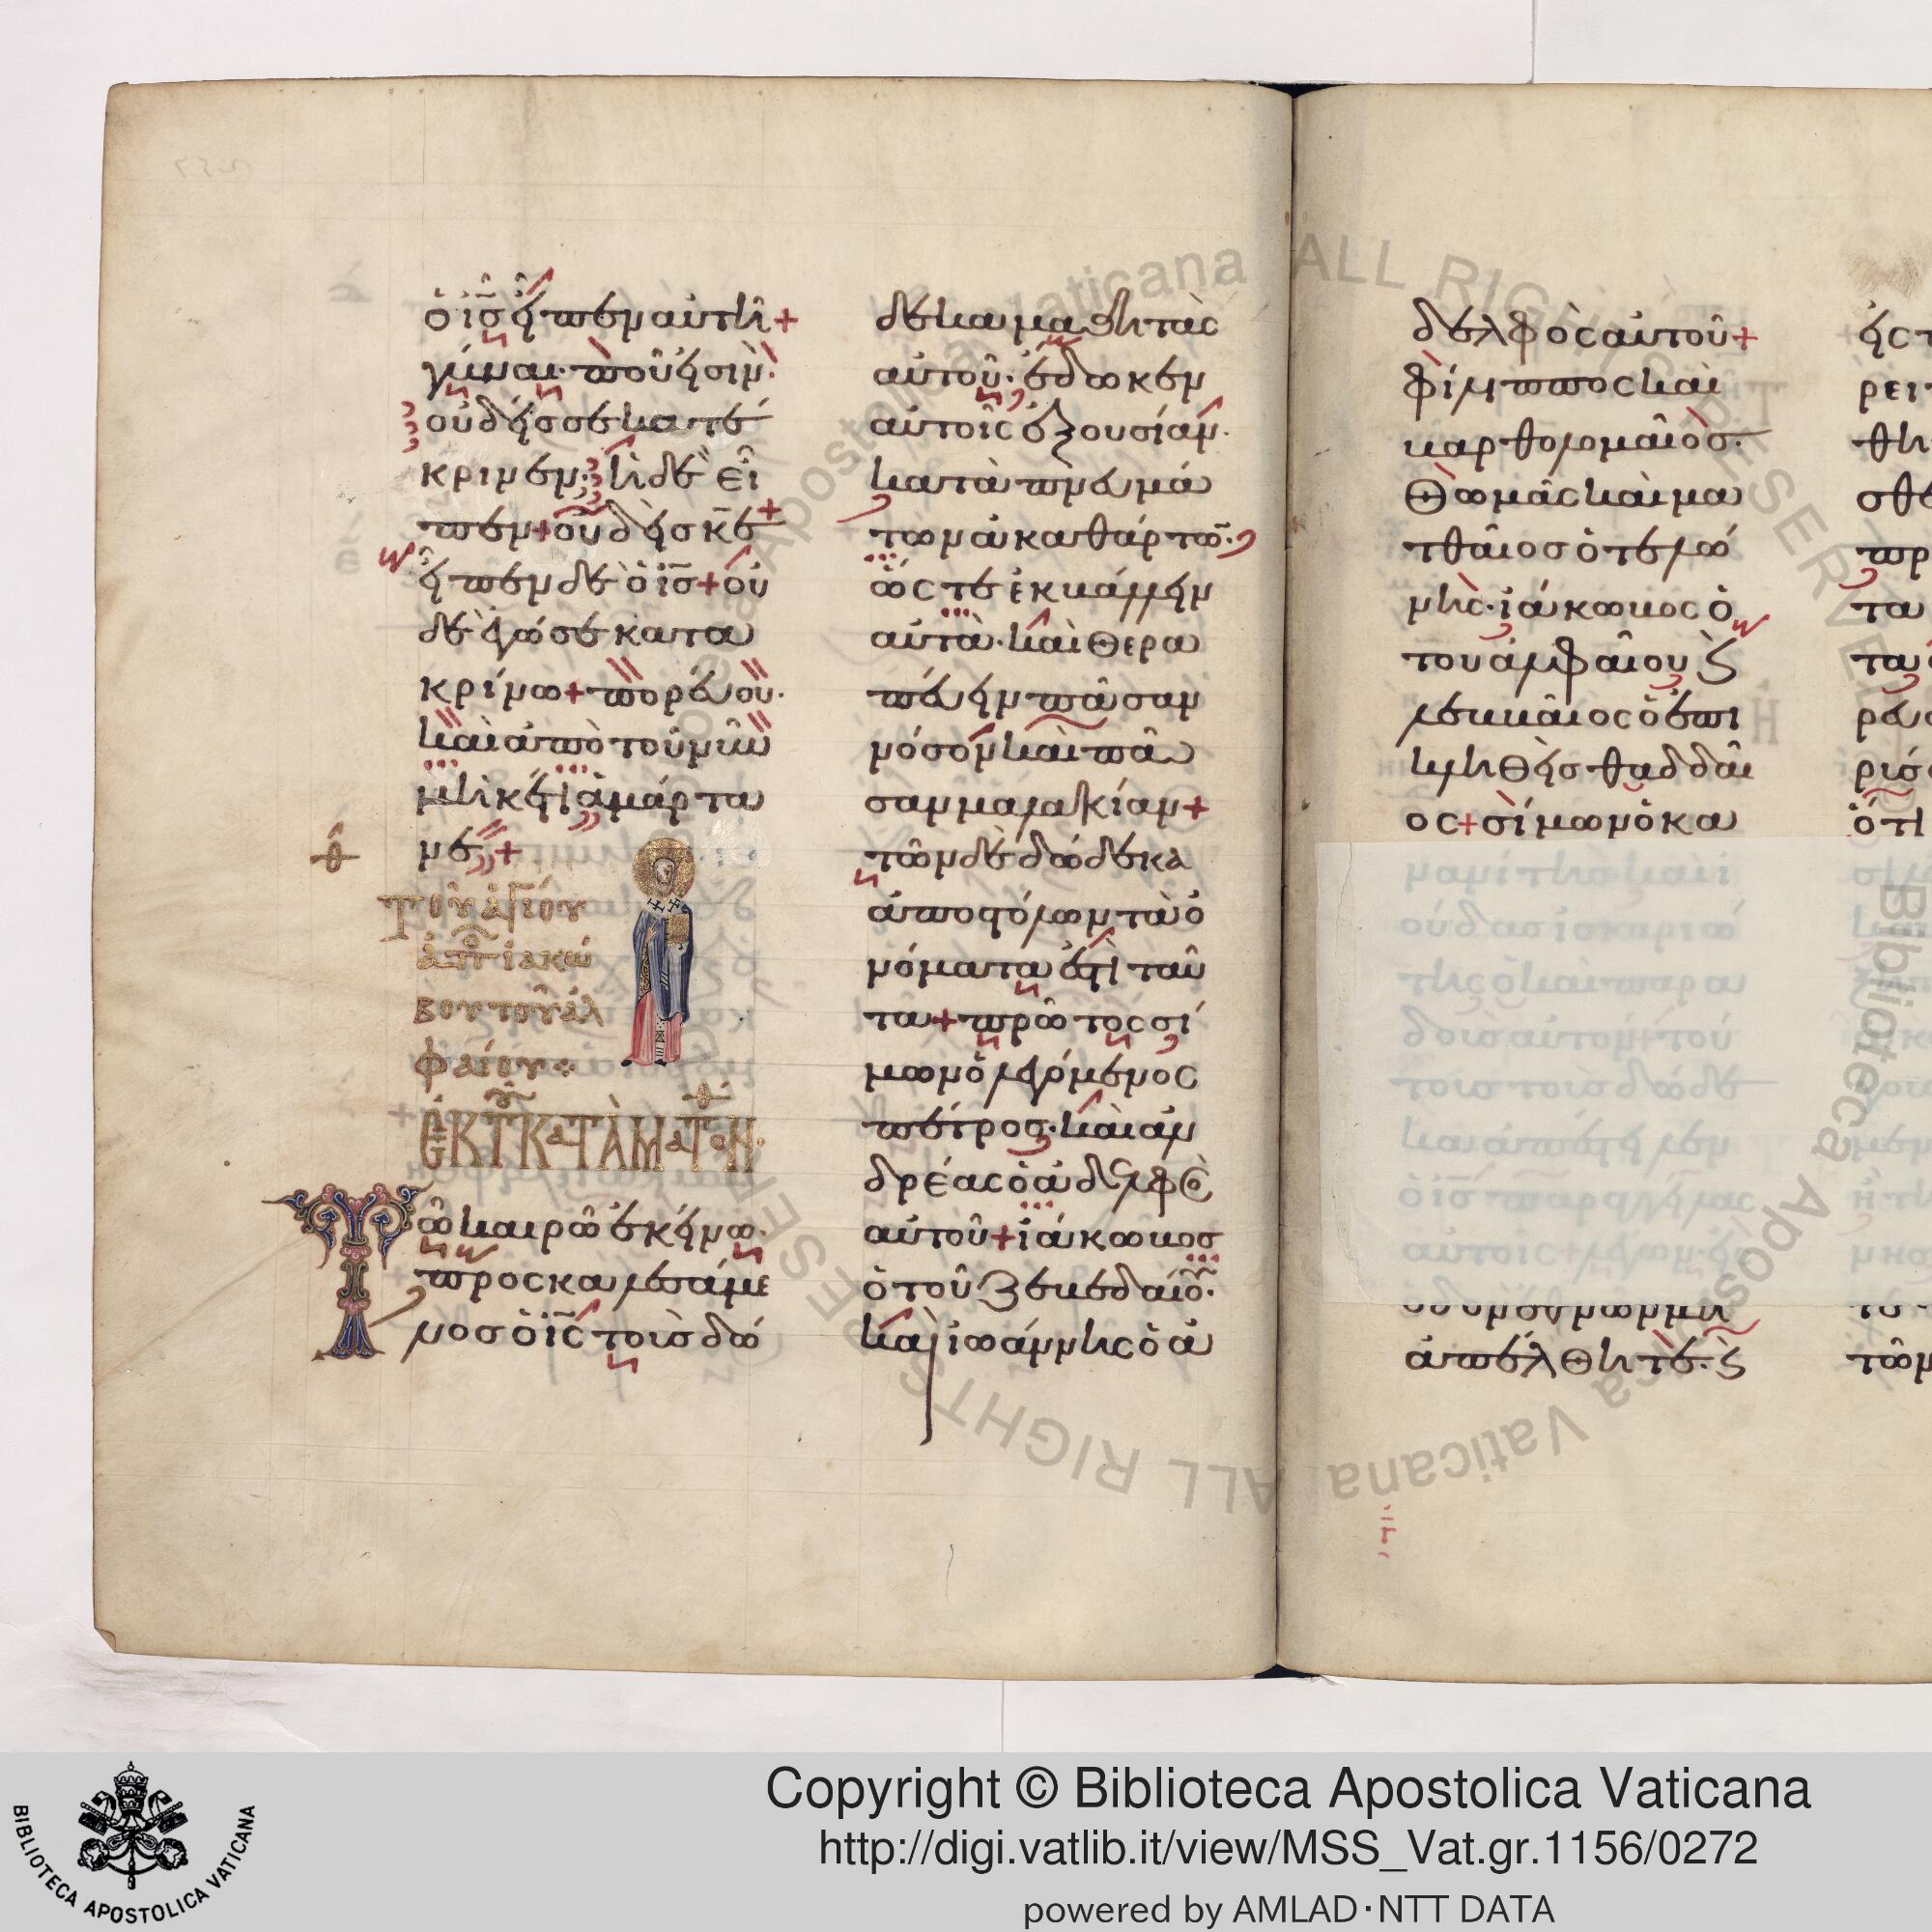 ὁ ις̅ εἶπεν αὐτῆ+
γύναι· ποῦ εἰσὶν·
οὐδείς σε κατέ
κρινεν· ἡ δὲ εἶ
πεν+οὐδεὶς κ̅ε+
εἶπεν δὲ ὁ ις̅+οὐ
δὲ ἐγώ σε κατα
κρίνω+πορεύου·
καὶ ἀπὸ τοῦ νῦν
μὴκέτι ἁμάρτα
νε+
θ
Τοῦ ἁγίου
ἀπο ἰακώ
βου τοῦ ἀλ
φαίου
ἐκ τ κατὰ ματθον·
Τῶ καιρῶ ἐκείνω·
προσκαλεσάμε
νοσ ὁ ις̅ τοῖσ δώ
δεκα μαθητὰς
αὐτοῦ· ἔδωκεν
αὐτοῖς ἐξουσίαν·
κατὰ πνευμά
των ἀκαθάρτω̅·
ὥς τε ἐκβάλλειν
αὐτὰ· καὶ θερα
πεύειν πᾶσαν
νόσον καὶ πᾶ
σαν μαλακίαν+
τῶν δὲ δώδεκα
ἀποστόλων τὰ ὀ
νόματα ἐστὶ ταῦ
τα+πρῶτος σί
μων ὁ λεγόμενος
πέτρος· καὶ ἀν
δρέας ὁ ἀδελφὸς
αὐτοῦ+ἰάκωβοσ
ὁ τοῦ ζεβεδαίου·
καὶ ἰωάννης ὁ ἀ
δελφὸς αὐτοῦ+
φίλιππος καὶ
βαρθολομαῖοσ·
Θωμᾶς καὶ μα
τθαῖοσ ὁ τελώ
νης· ἰάκωβος ὁ
τοῦ ἀλφαίου ϛ
λεββαῖος ὁ ἐπι
κληθεὶσ θαδδαῖ
ος+σίμων ὁ κα
νανίτησ καὶ ἰ
ούδασ ἰσκαριώ
της ὁ καὶ παρα
δοὺσ αὐτόν+τού
τουσ τοὺσ δώδε
κα ἀπέστειλεν
ὁ ις̅ παραγγείλας
αὐτοῖς+λέγων· εἰς
ὁδὸν ἐθνῶν μὴ
ἀπέλθητε· ϛ
εἰς τ
ρει
θη
σθε
πρ
τα
τα
ρευ
ρισ
ὅτι
Copyright © Biblioteca Apostolica Vaticana
http://digi.vatlib.it/view/MSS_Vat.gr.1156/0272
powered by AMLAD·NTT DATA
BIBLIOTECA APOSTOLICA VATICANA